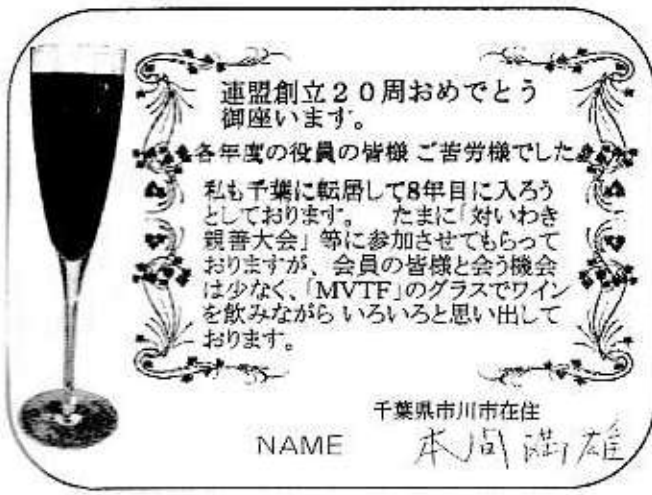 連盟創立20周おめでとう
御座います。
各年度の役員の皆様 ご苦労様でした
私も千葉に転居して8年目に入ろう
としております。 たまに「対いわき
親善大会」等に参加させてもらって
おりますが、会員の皆様と会う機会
は少なく、「MVTF」のグラスでワイン
を飲みながら いろいろと思い出して
おります。
千葉県市川市在住
NAME 本間 満雄